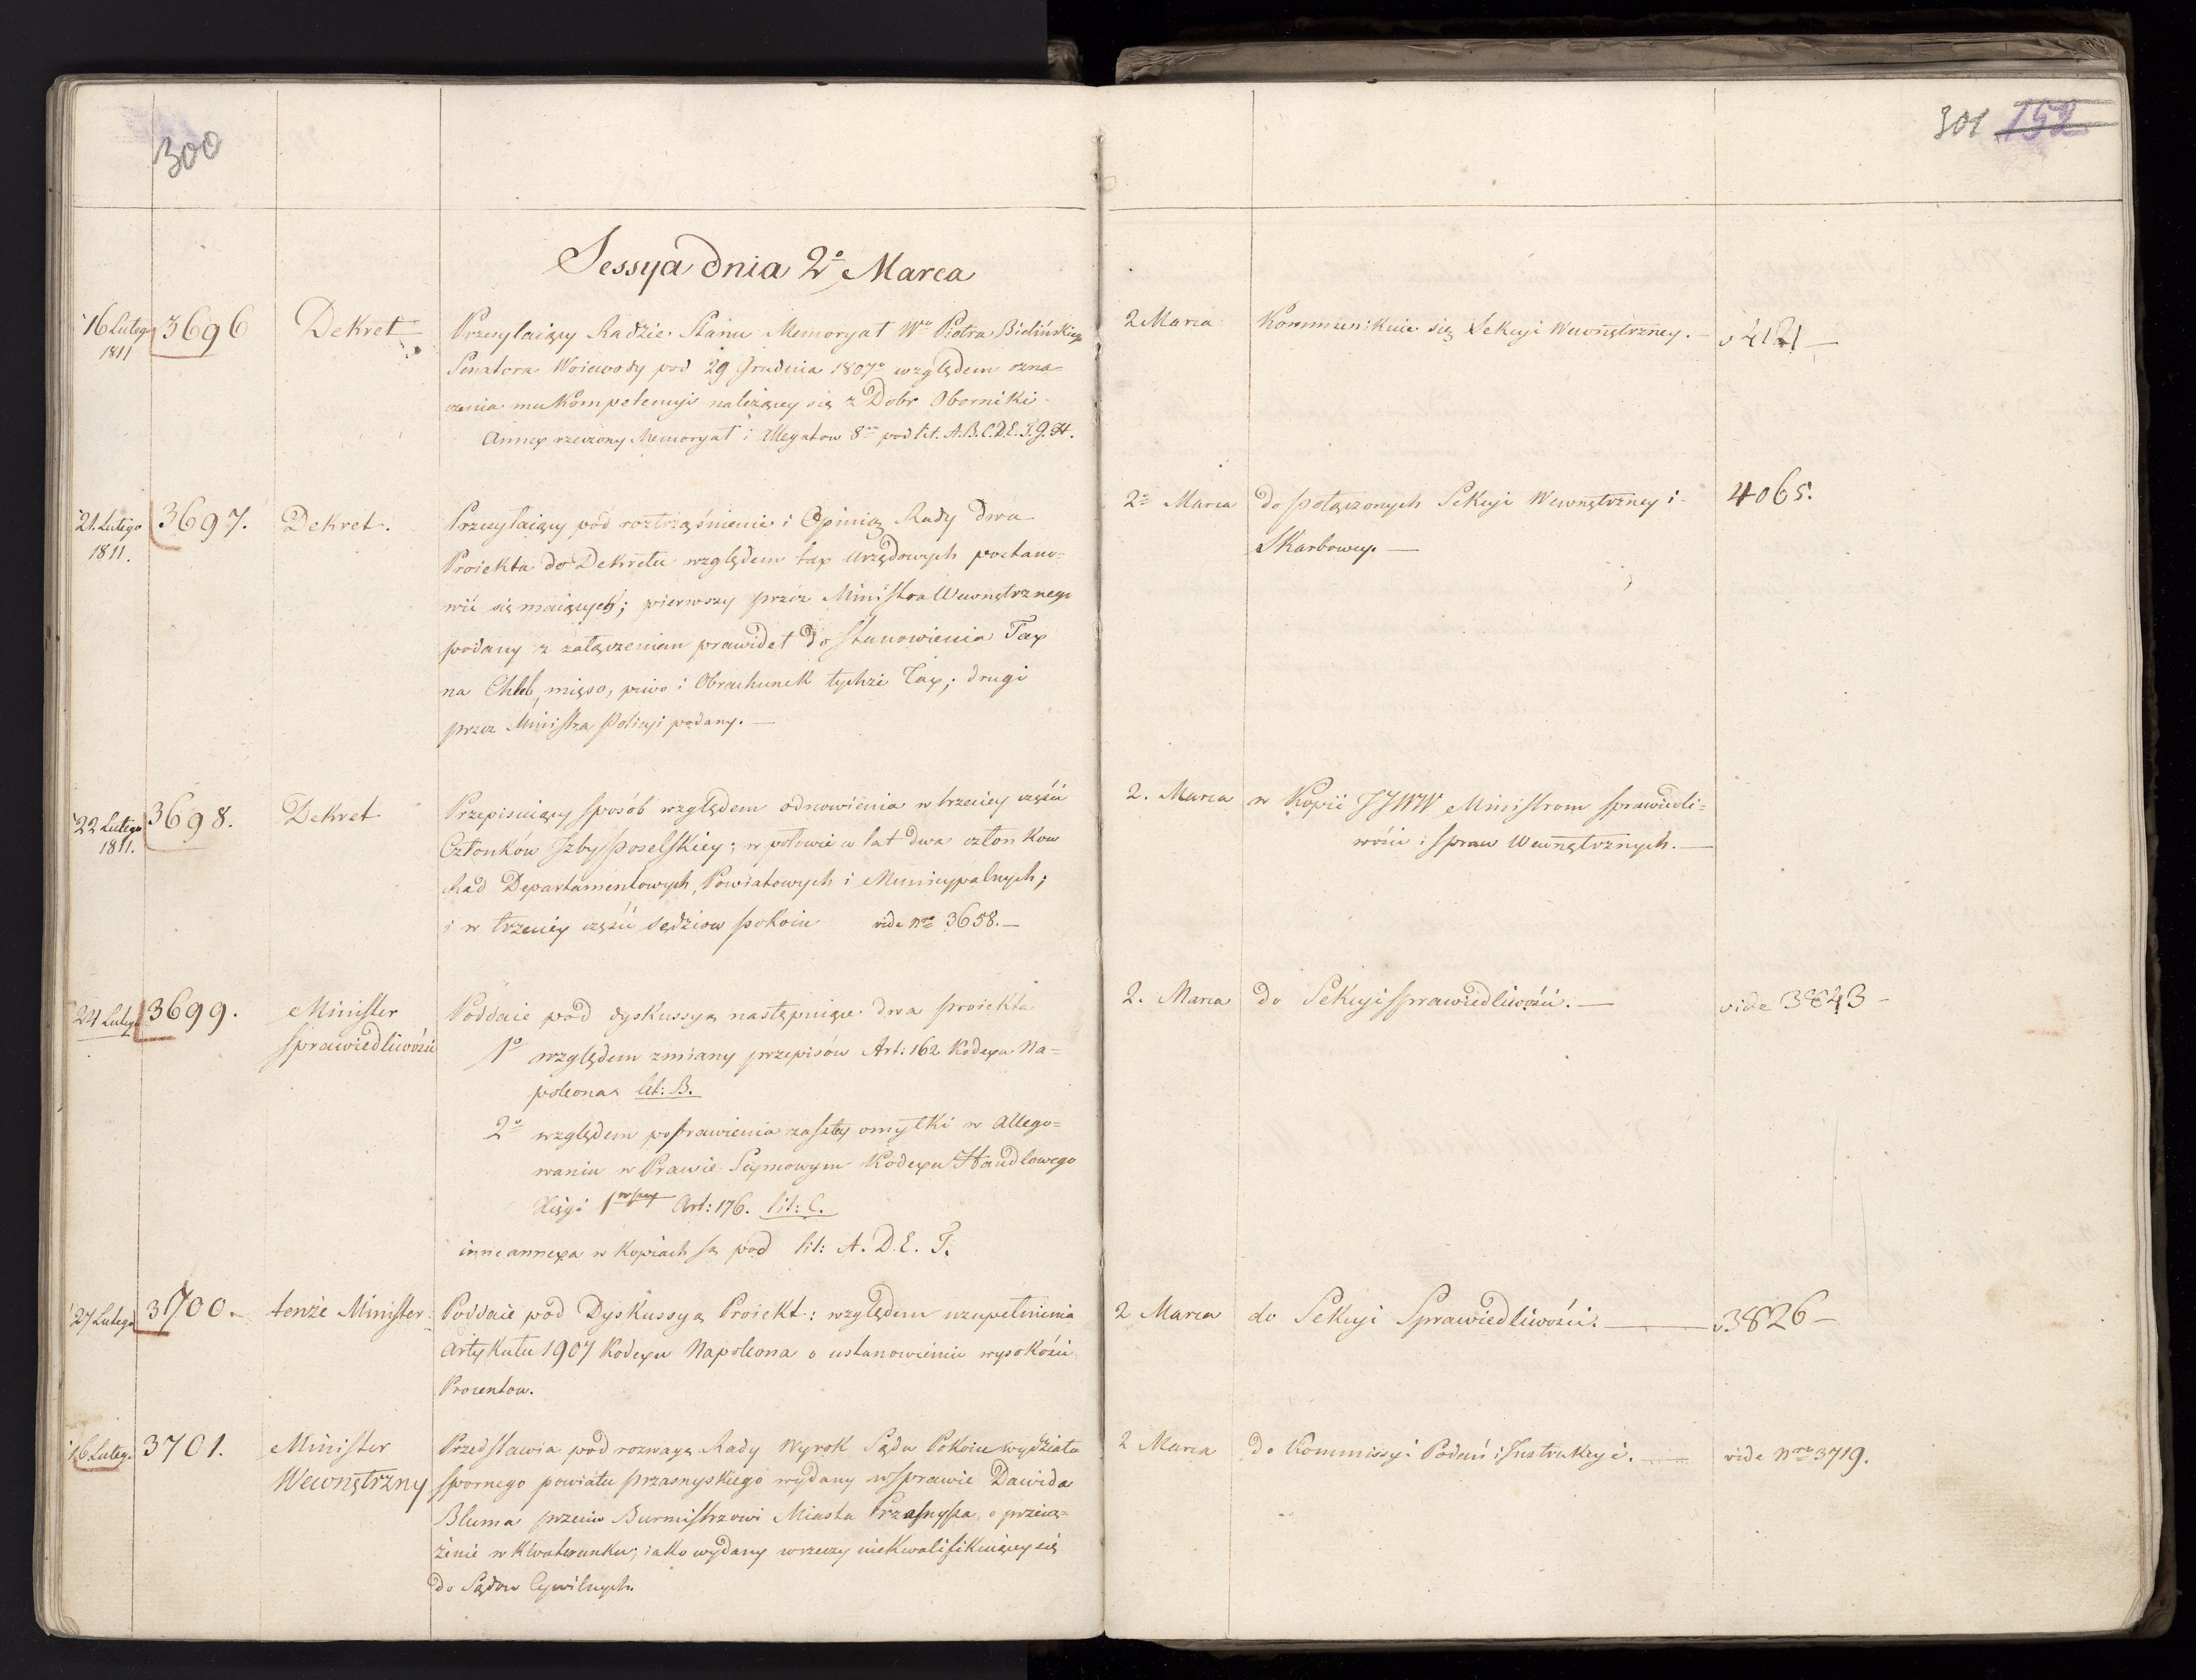 300
Sessya dnia 2° Marca
16 Lutego 1811
3696
Dekret
Przesyłaiący Radzie Stanu Memoryał Wo Piotra Bielińskiego
Senatora Woiewody pod 29 Grudnia 1807° względem ozna=
czenia mu Kompetencyi należącey się z Dobr Oborniki
Annex rzeczony Memoryał i Allegatow 8 pod lit. A.B.C.D.E.F.G.H.
21. Lutego 1811.
3697.
Dekret.
Przesyłaiący pod roztrząśnienie i Opinią Rady dwa
Proiekta do Dekretu względem tax Urzędowych postano=
wić się maiących; pierwszy przez Ministra Wewnętrznego
podany z załączeniem prawideł do stanowienia Tax
na Chleb, mięso, piwo i Obrachunek tychże Tax; drugi
przez Ministra Policyi podany. —
22 Lutego 1811.
3698.
Dekret
Przepisuiący sposób względem odnowienia w trzeciey części
Członków Izby Poselskiey; w połowie w lat dwa członkow
Rad Departamentowych, Powiatowych i Municypalnych;
i w trzeciey części sędziow pokoiu vide Nro 3658. —
24 Lutego
3699.
Minister
sprawiedliwości
Poddaie pod dyskussyą następuiące dwa proiekta
1° względem zmiany przepisów Art: 162 Kodexu Na=
poleona lit: B.
2° względem poprawienia zaszłey omyłki w Allego=
waniu w Prawie Seymowym Kodexu Handlowego
Xięgi 1wszey Art: 176. lit: C.
inne annexa w Kopiach są pod lit: A. D. E. F.
27 Lutego
3700.
tenże Minister
Poddaie pod Dyskussyą Proiekt: względem uzupełnienia
Artykułu 1907 Kodexu Napoleona o ustanowieniu wysokości
Procentow.
16 Lutego
3701.
Minister
Wewnętrzny
Przedstawia pod rozwagę Rady Wyrok Sądu Pokoiu Wydziału
spornego powiatu przasnyskiego wydany w sprawie Dawida
Bluma przeciw Burmistrzowi Miasta Przasnysza o przecią=
żenie w Kwaterunku; iako wydany w rzeczy niekwalifikuiącey się
do Sądow Cywilnych.
301 152
2 Marca
Kommunikuie się Sekcyi Wewnętrzney. —
v 4121 —
2 Marca
do połączonych Sekcyi Wewnętrzney i
Skarbowey. —
4065.
2. Marca
w Kopii JJWW Ministrom sprawiedli=
wości i spraw Wewnętrznych. —
2. Marca
do Sekcyi sprawiedliwości. —
vide 3843 —
2 Marca
do Sekcyi Sprawiedliwości. —
v 3826 —
2 Marca
do Kommissyi Podań i Instrukcyi.
vide Nro 3719.